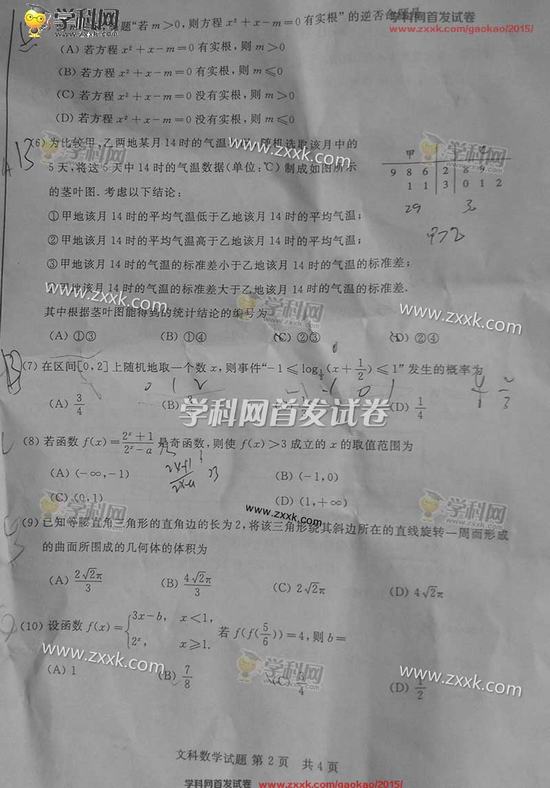 学科网首发试卷
www.zxxk.com/gaokao/2015/
学科网
www.zxxk.com
题"若 m>0,则方程 x²+x-m=0 有实根"的逆否
(A) 若方程 x²+x-m=0 有实根,则 m>0
(B) 若方程 x²+x-m=0 有实根,则 m≤0
(C) 若方程 x²+x-m=0 没有实根,则 m>0
(D) 若方程 x²+x-m=0 没有实根,则 m≤0
(6) 为比较甲、乙两地某月 14 时的气温 随机选取该月中的
5 天,将这 5 天中 14 时的气温数据(单位:℃)制成如图所示
的茎叶图. 考虑以下结论:
甲
9 8 6 2 8 9
1 1 3 0 1 2
29
甲>乙
①甲地该月 14 时的平均气温低于乙地该月 14 时的平均气温;
②甲地该月 14 时的平均气温高于乙地该月 14 时的平均气温;
③甲地该月 14 时的气温的标准差小于乙地该月 14 时的气温的标准差;
甲地该月 14 时的气温的标准差大于乙地该月 14 时的气温的标准差.
www.zxxk.com
学科网
www.zxxk.com
其中根据茎叶图能得到的统计结论的编号为
(A) ①③ (B) ①④ (C) ②③ (D) ②④
(7) 在区间[0,2]上随机地取一个数 x,则事件"-1≤log½(x+1/2)≤1"发生的概率为
(A) 3/4 (B) (D) 1/4
学科网首发试卷
(8) 若函数 f(x)=(2ˣ+1)/(2ˣ-a) 是奇函数,则使 f(x)>3 成立的 x 的取值范围为
(A) (-∞,-1) (B) (-1,0)
(C) (0,1) (D) (1,+∞)
学科网
www.zxxk.com
(9) 已知等腰直角三角形的直角边的长为 2,将该三角形绕其斜边所在的直线旋转一周而形成
的曲面所围成的几何体的体积为
(A) 2√2π/3 (B) 4√2π/3 (C) 2√2π (D) 4√2π
(10) 设函数 f(x)={3x-b, x<1, 2ˣ, x≥1. 若 f(f(5/6))=4,则 b=
(A) 1 (B) 7/8 (C) 3/4 (D) 1/2
www.zxxk.com
学科网
www.zxxk.com
文科数学试题 第 2 页 共 4 页
学科网首发试卷
www.zxxk.com/gaokao/2015/